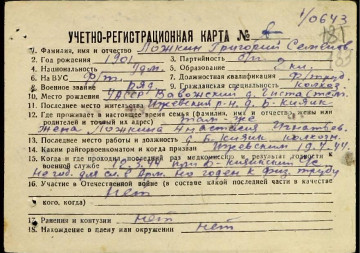 1/0643
УЧЕТНО-РЕГИСТРАЦИОННАЯ КАРТА №
1. Фамилия, имя и отчество Ложкин Григорий Семенов.
2. Год рождения 1901 3. Партийность б/п
4. Национальность удм. 5. Образование 2 кл.
6. На ВУС 7. Должностная квалификация
8. Военное звание ряд. 9. Гражданская специальность колхоз.
10. Место рождения УАССР Вавожский
11. Последнее место жительства Ижевский р-н, д. Б-Кияик
12. Где проживает в настоящее время семья (фамилия, имя и отчество жены или родителей и точный их адрес) там же
жена Ложкина Анастасия Игнатьев.
13. Последнее место работы и должность д. Б. Кияик колхоз
14. Каким райгорвоенкоматом и когда призван Ижевским 19.4.44.
15. Когда и где проходил последний раз медкомиссию и результат годности к
военной службе
Не год. для сл. в Арм. но годен к физ. труду
16. Участие в Отечественной войне (в составе какой последней части в качестве
кого, когда) нет
17. Ранения и контузии нет
18. Нахождение в плену или окружении нет